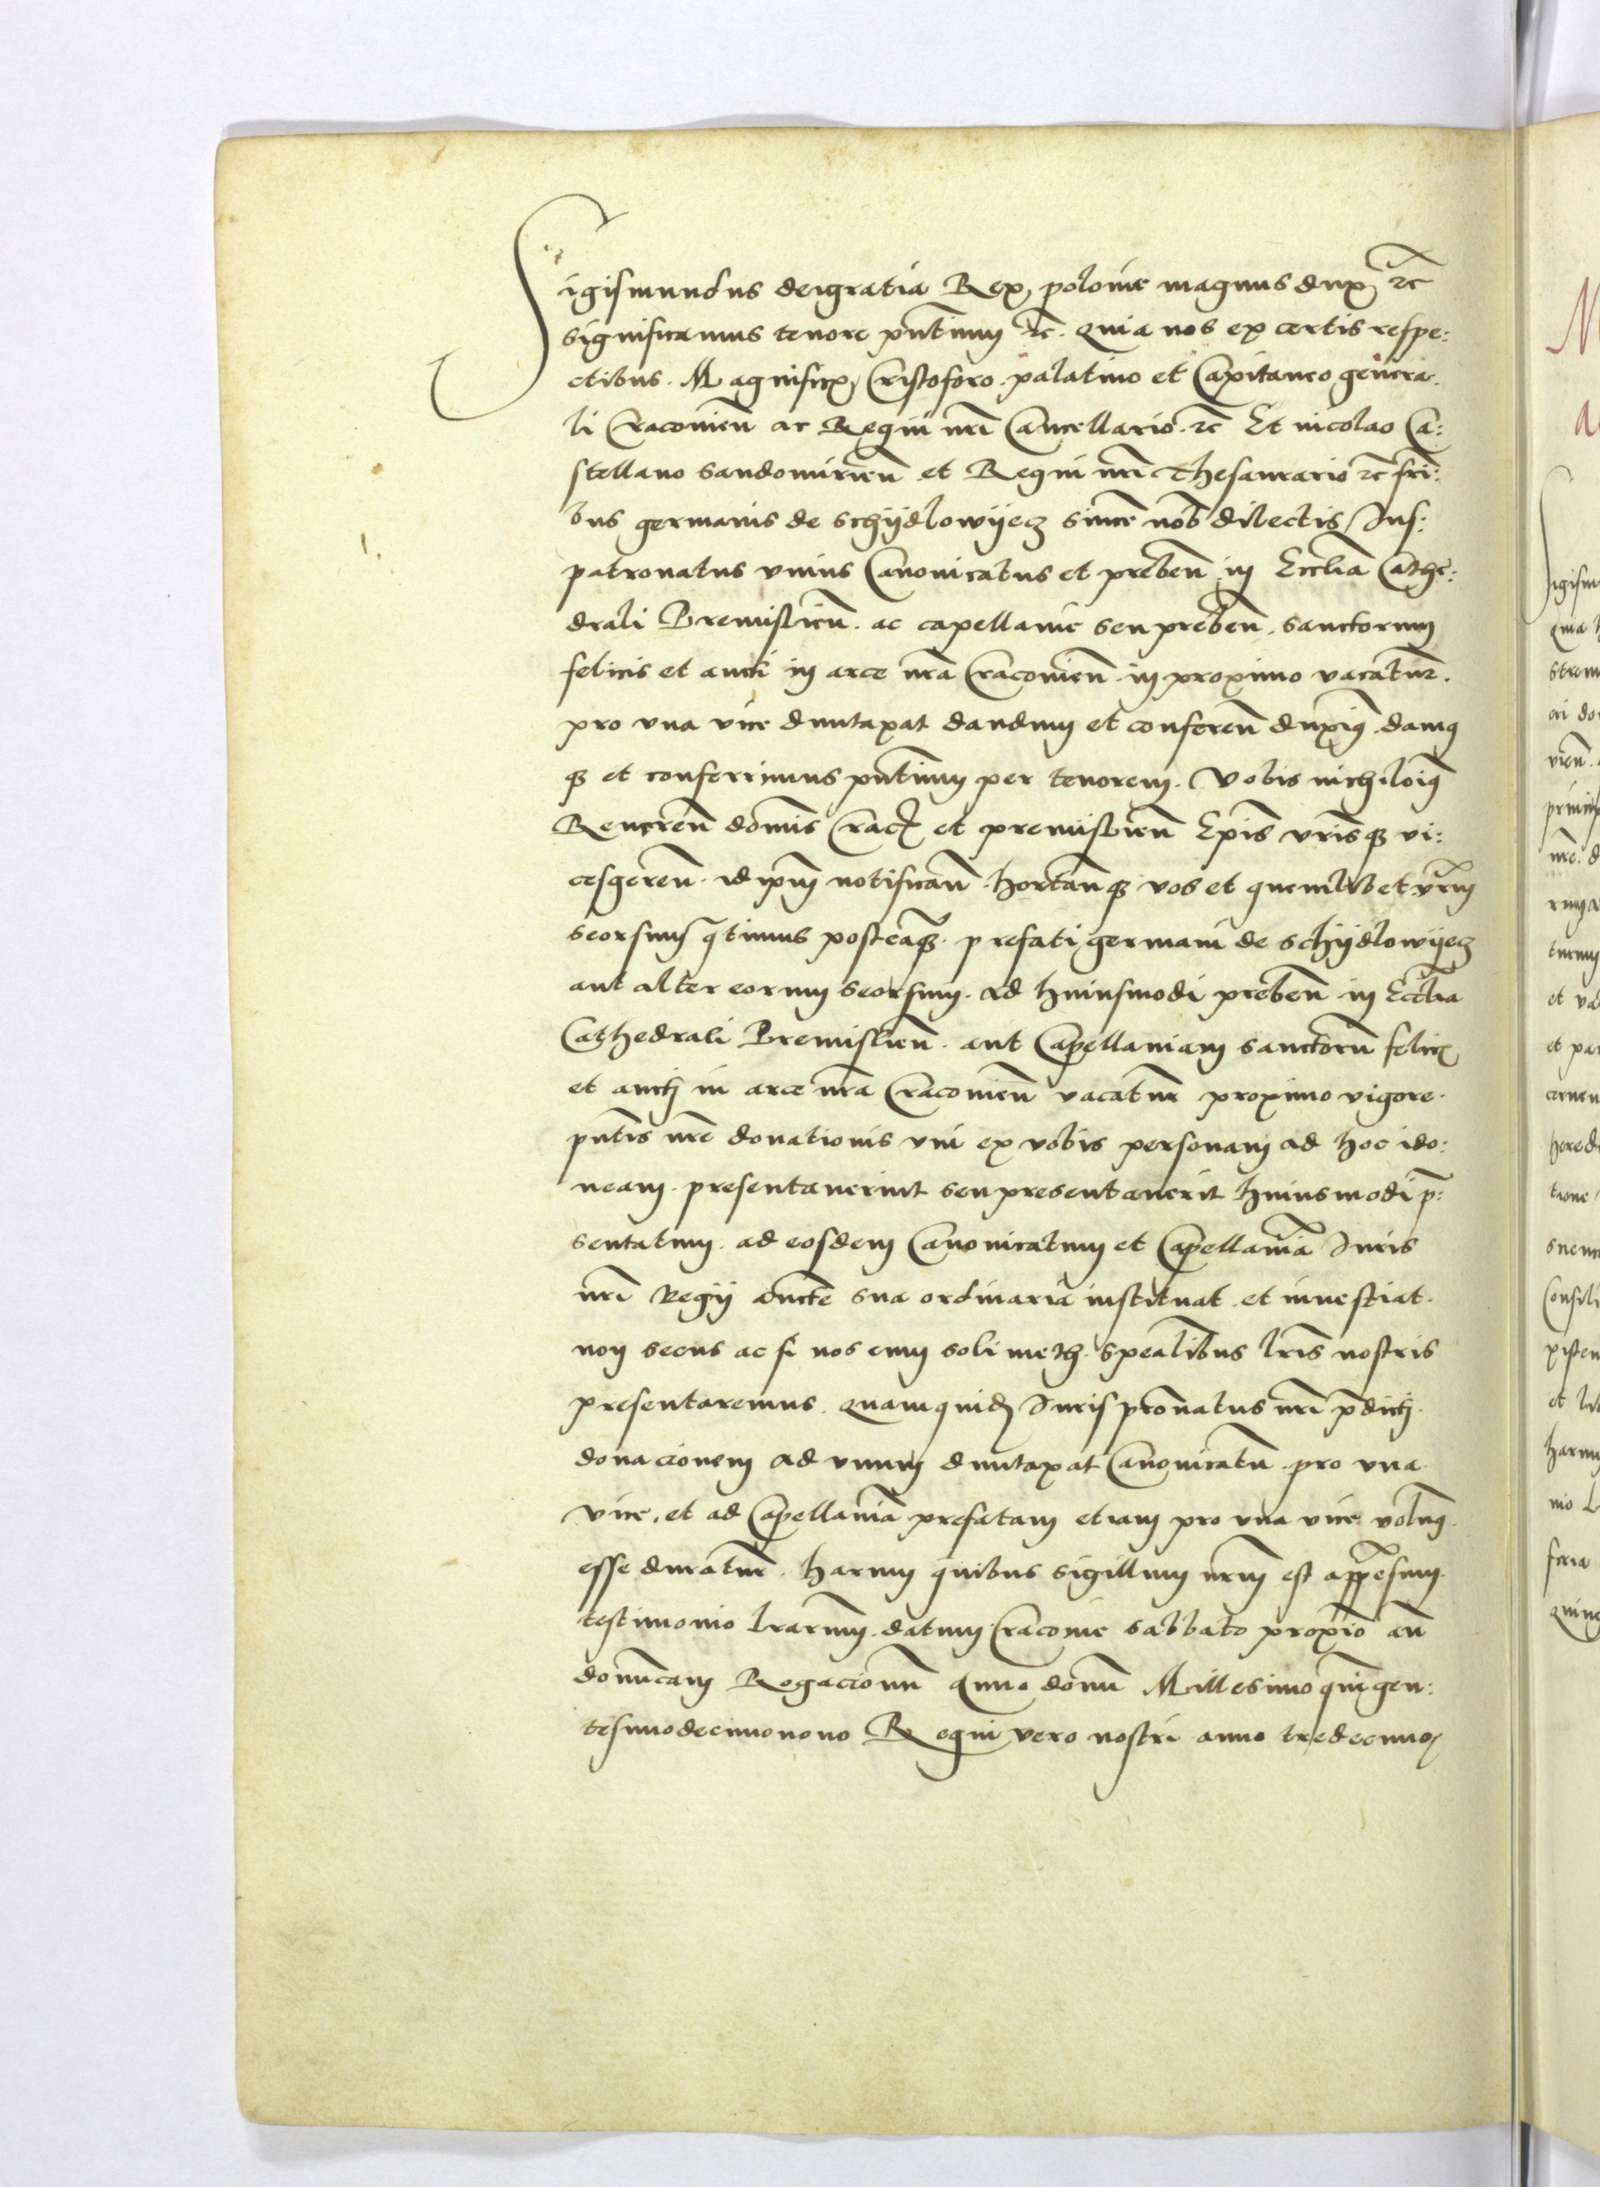 Sigismundus deigratia Rex polonie magnus dux ꝛc̄
significamus tenore pn̄tium ꝛc̄. Quia nos ex certis respe:
ctibus. Magnificꝭ Cristoforo palatino et Capitaneo genera
li Cracouien̄ ac Regni nr̄i Cancellario ꝛc̄ Et nicolao Ca:
stellano sandomirien̄ et Regni nr̄i Thesaurario ꝛc̄ fr̄i:
bus germanis de schÿdlowÿecz sincē nob̄ dilectis Jus:
patronatus vnius Canonicatus et preben̄ in Ecclīa Cathe:
drali Premislien̄. ac capellanie seu preben̄. sanctorum
felicis et aucti in arce nr̄a Cracouien̄ in proximo vacatur̄.
pro vna vice duntaxat dandum et conferen̄ duximꝰ. damꝰ
qꝫ et conferrimus pn̄tium per tenorem. Vobis nichilomiꝰ
Reueren̄ domīs Crac̄ et premislien̄ Ep̄is vr̄isqꝫ vi:
cesgeren̄. id ipm̄ notifican̄. hortan̄qꝫ vos et quemlibet vr̄m
seorsum q̄tinus posteaqꝫ prefati germani de schÿdlowÿecz
aut alter eorum seorsum. ad huiusmodi preben̄ in Ecclīa
Cathedrali Premislien̄. aut Capellaniam sanctorū felicꝭ
et aucti in arce nr̄a Cracouien̄ vacatur̄ proximo vigore
pn̄tis nr̄e donationis vni ex vobis personam ad hoc ido:
neam. presentauerint seu presentauerit huiusmodi p̄:
sentatum. ad eosdem Canonicatum et Capellaniā Juris
nr̄i Regÿ aucte sua ordinaria instituat et inuestiat.
non secus ac si nos eum soli meth. spealibus lr̄is nostris
presentaremus. Quamquidē Juris pr̄onatus nr̄i p̄dicti
donacionem ad vnum duntaxat Canonicatū pro vna
vice, et ad Capellaniā prefatam etiam pro vna vice volumꝰ
esse duratur̄. harum quibus sigillum nr̄m est appēsum
testimonio lr̄arum. datum Cracouie sabbato proxīo an̄
domīcam Rogacionū Anno domī Millesimo quīgen:
tesimodecimonono Regni vero nostri anno tredecimo